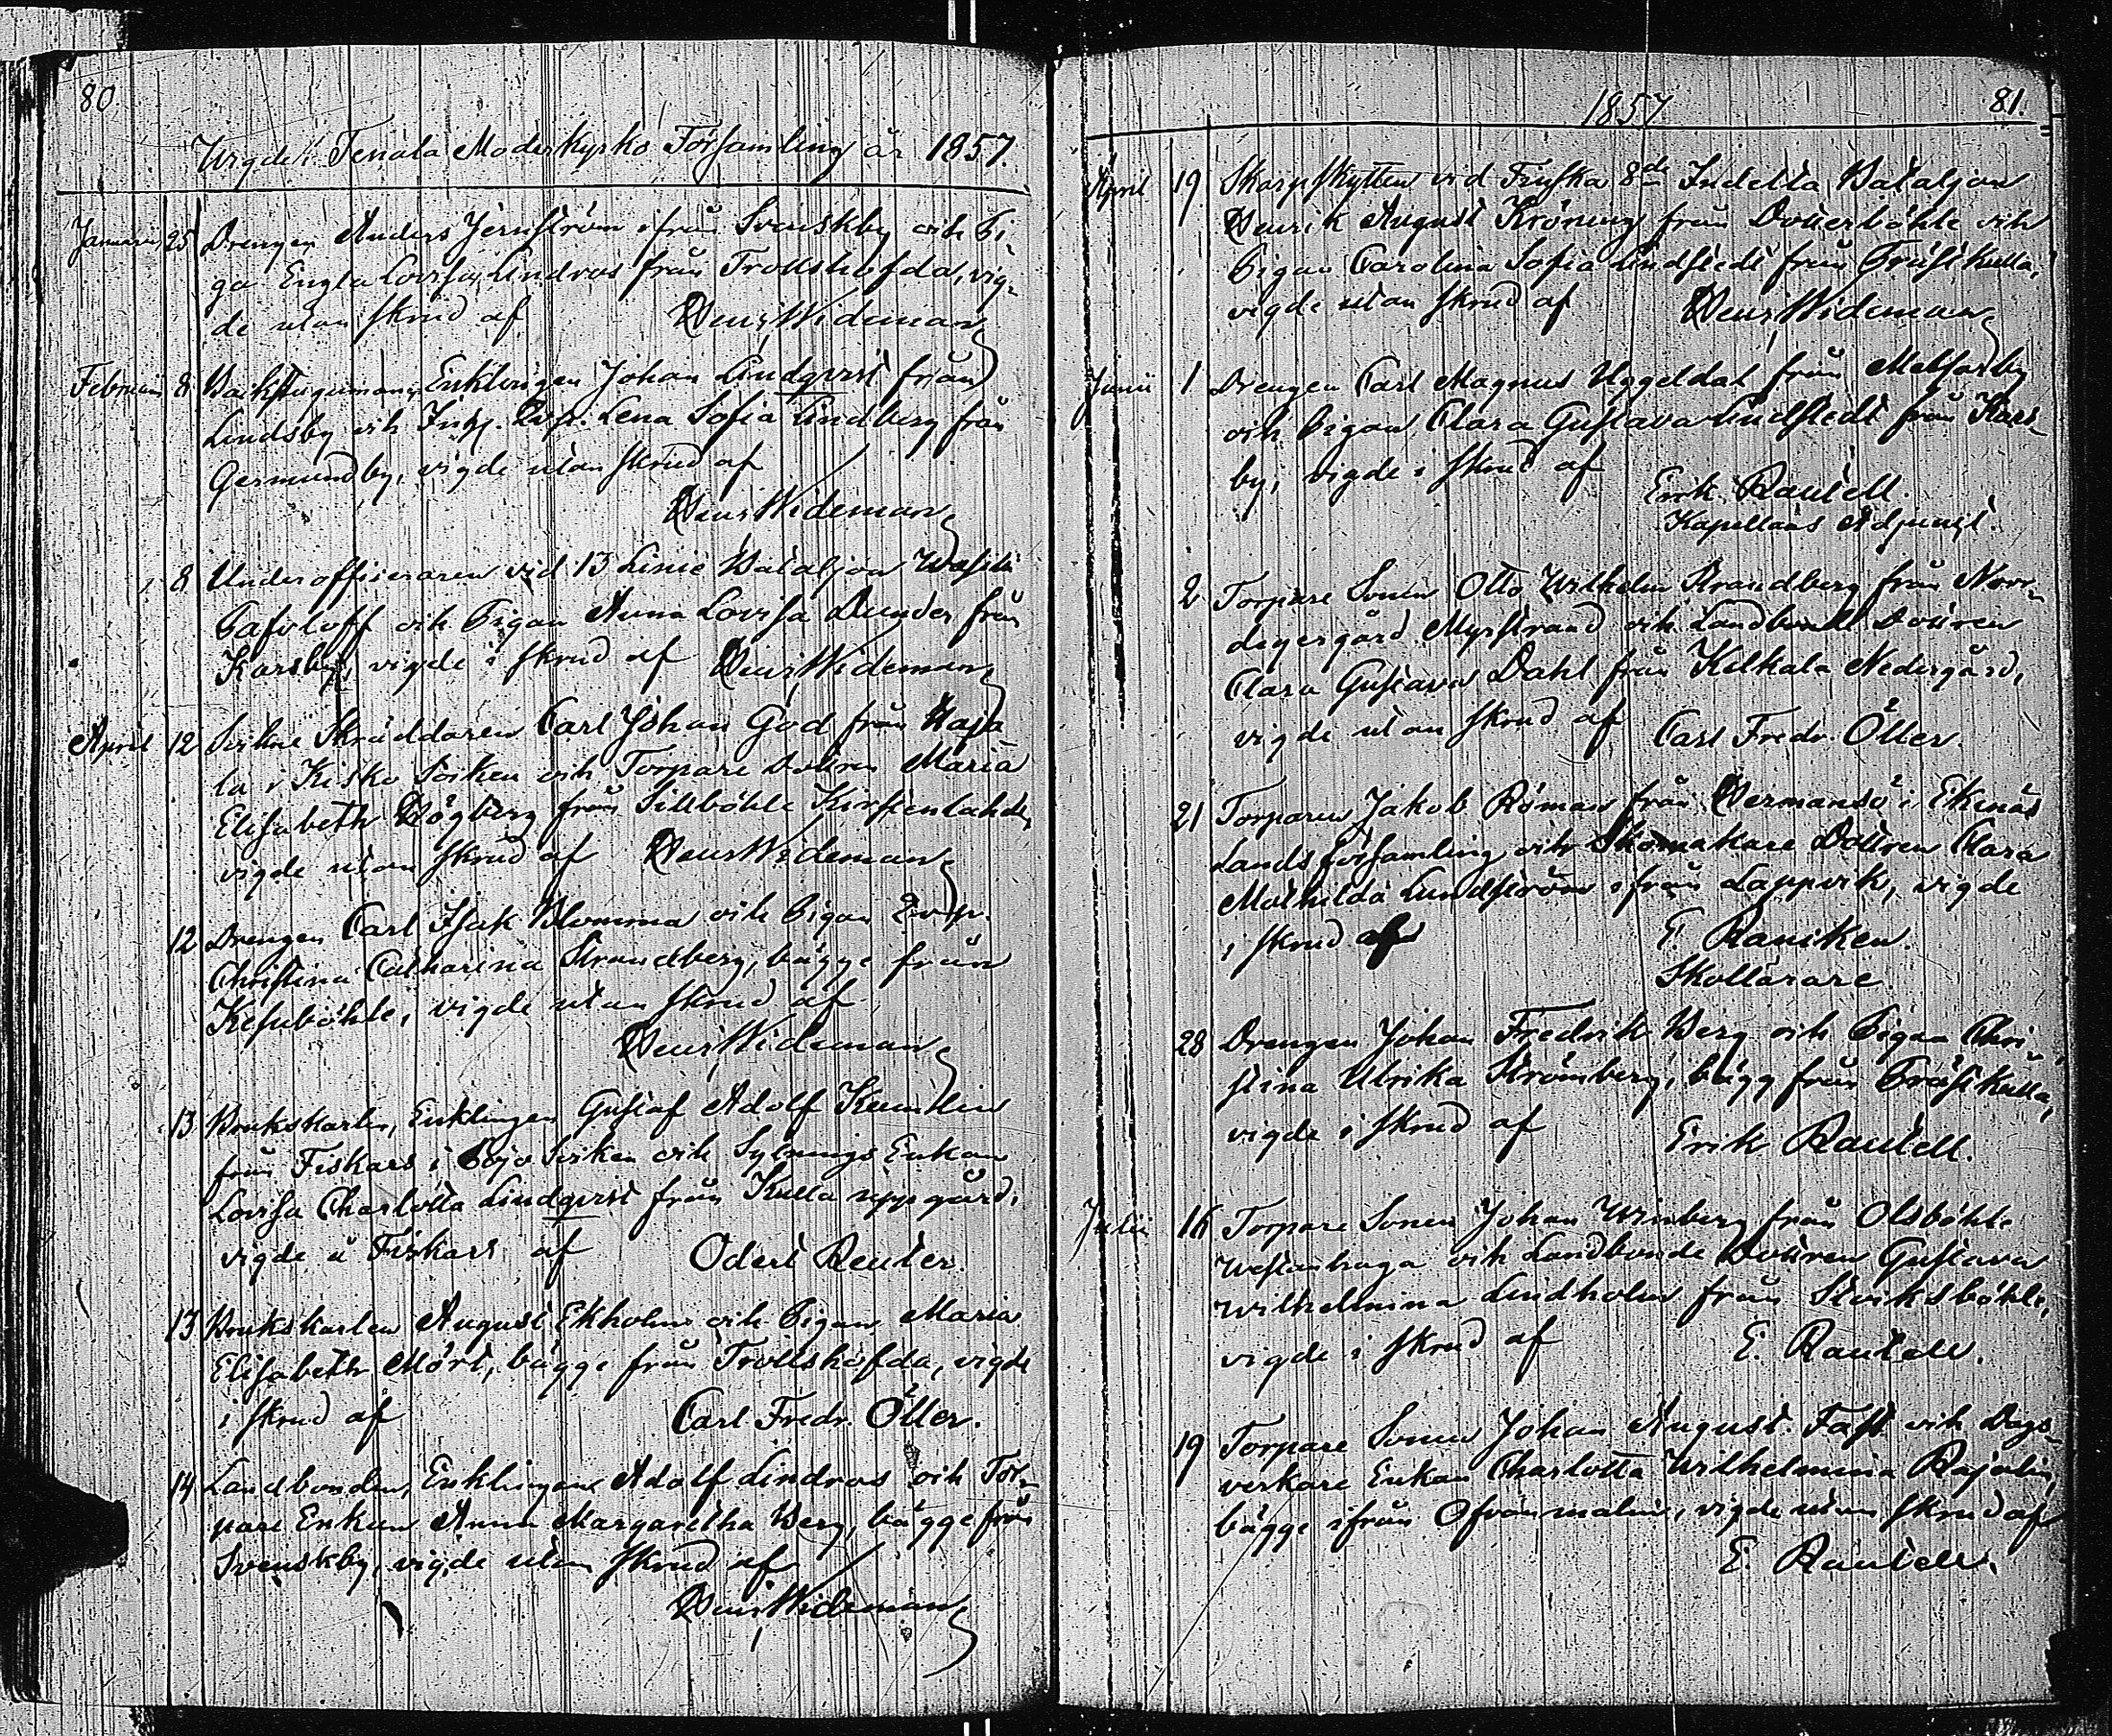 80.
Wigde i Tenala Moderkyrko Församling år 1857.
Januarii 25 Drengen Anders Jernström ifrån Svenskby och Pi-
ga Engla Lovisa Lindroos från Trollshofda, vig-
de utan skrud af Henr Wideman
Februarii 8 Backstugumannen Enklingen Johan Lindqvist från
Lindsby och Inhs. Lena Sofia Lindberg från
Germundby, vigde utan skrud af
Henr Wideman
8 Underofficeraren vid 13 Linie Bataljon Wasili
Pafvloff och Pigan Anna Lovisa Dunder från
Karsby, vigde i skrud af Henr Wideman
April 12 Sockne Skräddaren Carl Johan God från Haja
la i Kisko Socken och Torpare Dottren Maria
Elisabeth Högberg från Sillböhle Kirstenlahde,
vigde utan skrud af Henr Wideman
12 Drengen Carl Isak Blomma och Pigan
Christina Catharina Strandberg, bägge från
Kesuböhle, vigde utan skrud af
Henr Wideman
13 Brukskarlen, Enklingen Gustaf Adolf
från Fiskars i Pojo Socken och Sytnings Enkan
Lovisa Charlotta Lindqvist från Kulla uppgård,
vigde å Fiskars af Odert Reuter.
13 Brukskarlen August Ekholm och Pigan Maria
Elisabeth Mört, bägge från Trollshofda, vigde
i skrud af Carl Fredr. Öller.
14 Landbonden, Enklingen Adolf Lindroos och Tor-
pare Enkan Anna Margaretha Berg, bägge från
Svenskby, vigde utan skrud af
Henr Wideman
1857 81.
April 19 Skarpskytten vid Finska 8de Indelta Bataljon
Henrik August Kröning från Dotterböhle och
Pigan Carolina Sofia Lindstedt från Prästkulla,
vigde utan skrud af Henr Wideman
Junii 1 Drengen Carl Magnus Uggeldal från Melsarby
och Pigan Clara Gustava Lindstedt från Kars-
by, vigde i skrud af
Erik Rautell.
Kapellans Adjunct.
2 Torpare Sonen Otto Wilhelm Strandberg från Norr-
degergård Myrstrand och Landbonde Dottren
Clara Gustava Dahl från Kelkala Nedergård,
vigde utan skrud af Carl Fredr. Öller.
21 Torparen Jakob Röman från Hermansö i Ekenäs
Lands församling och Skomakare Dottren Clara
Mathilda Lundström ifrån Lappvik, vigde
i skrud af E Raniken.
Skollärare.
28 Drengen Johan Fredrik Berg och Pigan Chri-
stina Ulrika Strömberg, bägg från Prästkulla,
vigde i skrud af Erik Rautell.
Julii 16 Torpare Sonen Johan Winberg från Olsböhle
Westanhaga och Landbonde Dottren Gustava
Wilhelmina Lindholm från Skviksböhle,
vigde i skrud af E. Rautell.
19 Torpare Sonen Johan August Fast och Dags-
verkare Enkan Charlotta Wilhelmina Rajalin,
bägge ifrån Ofvanmalm, vigde utan skrud af
E. Rautell.